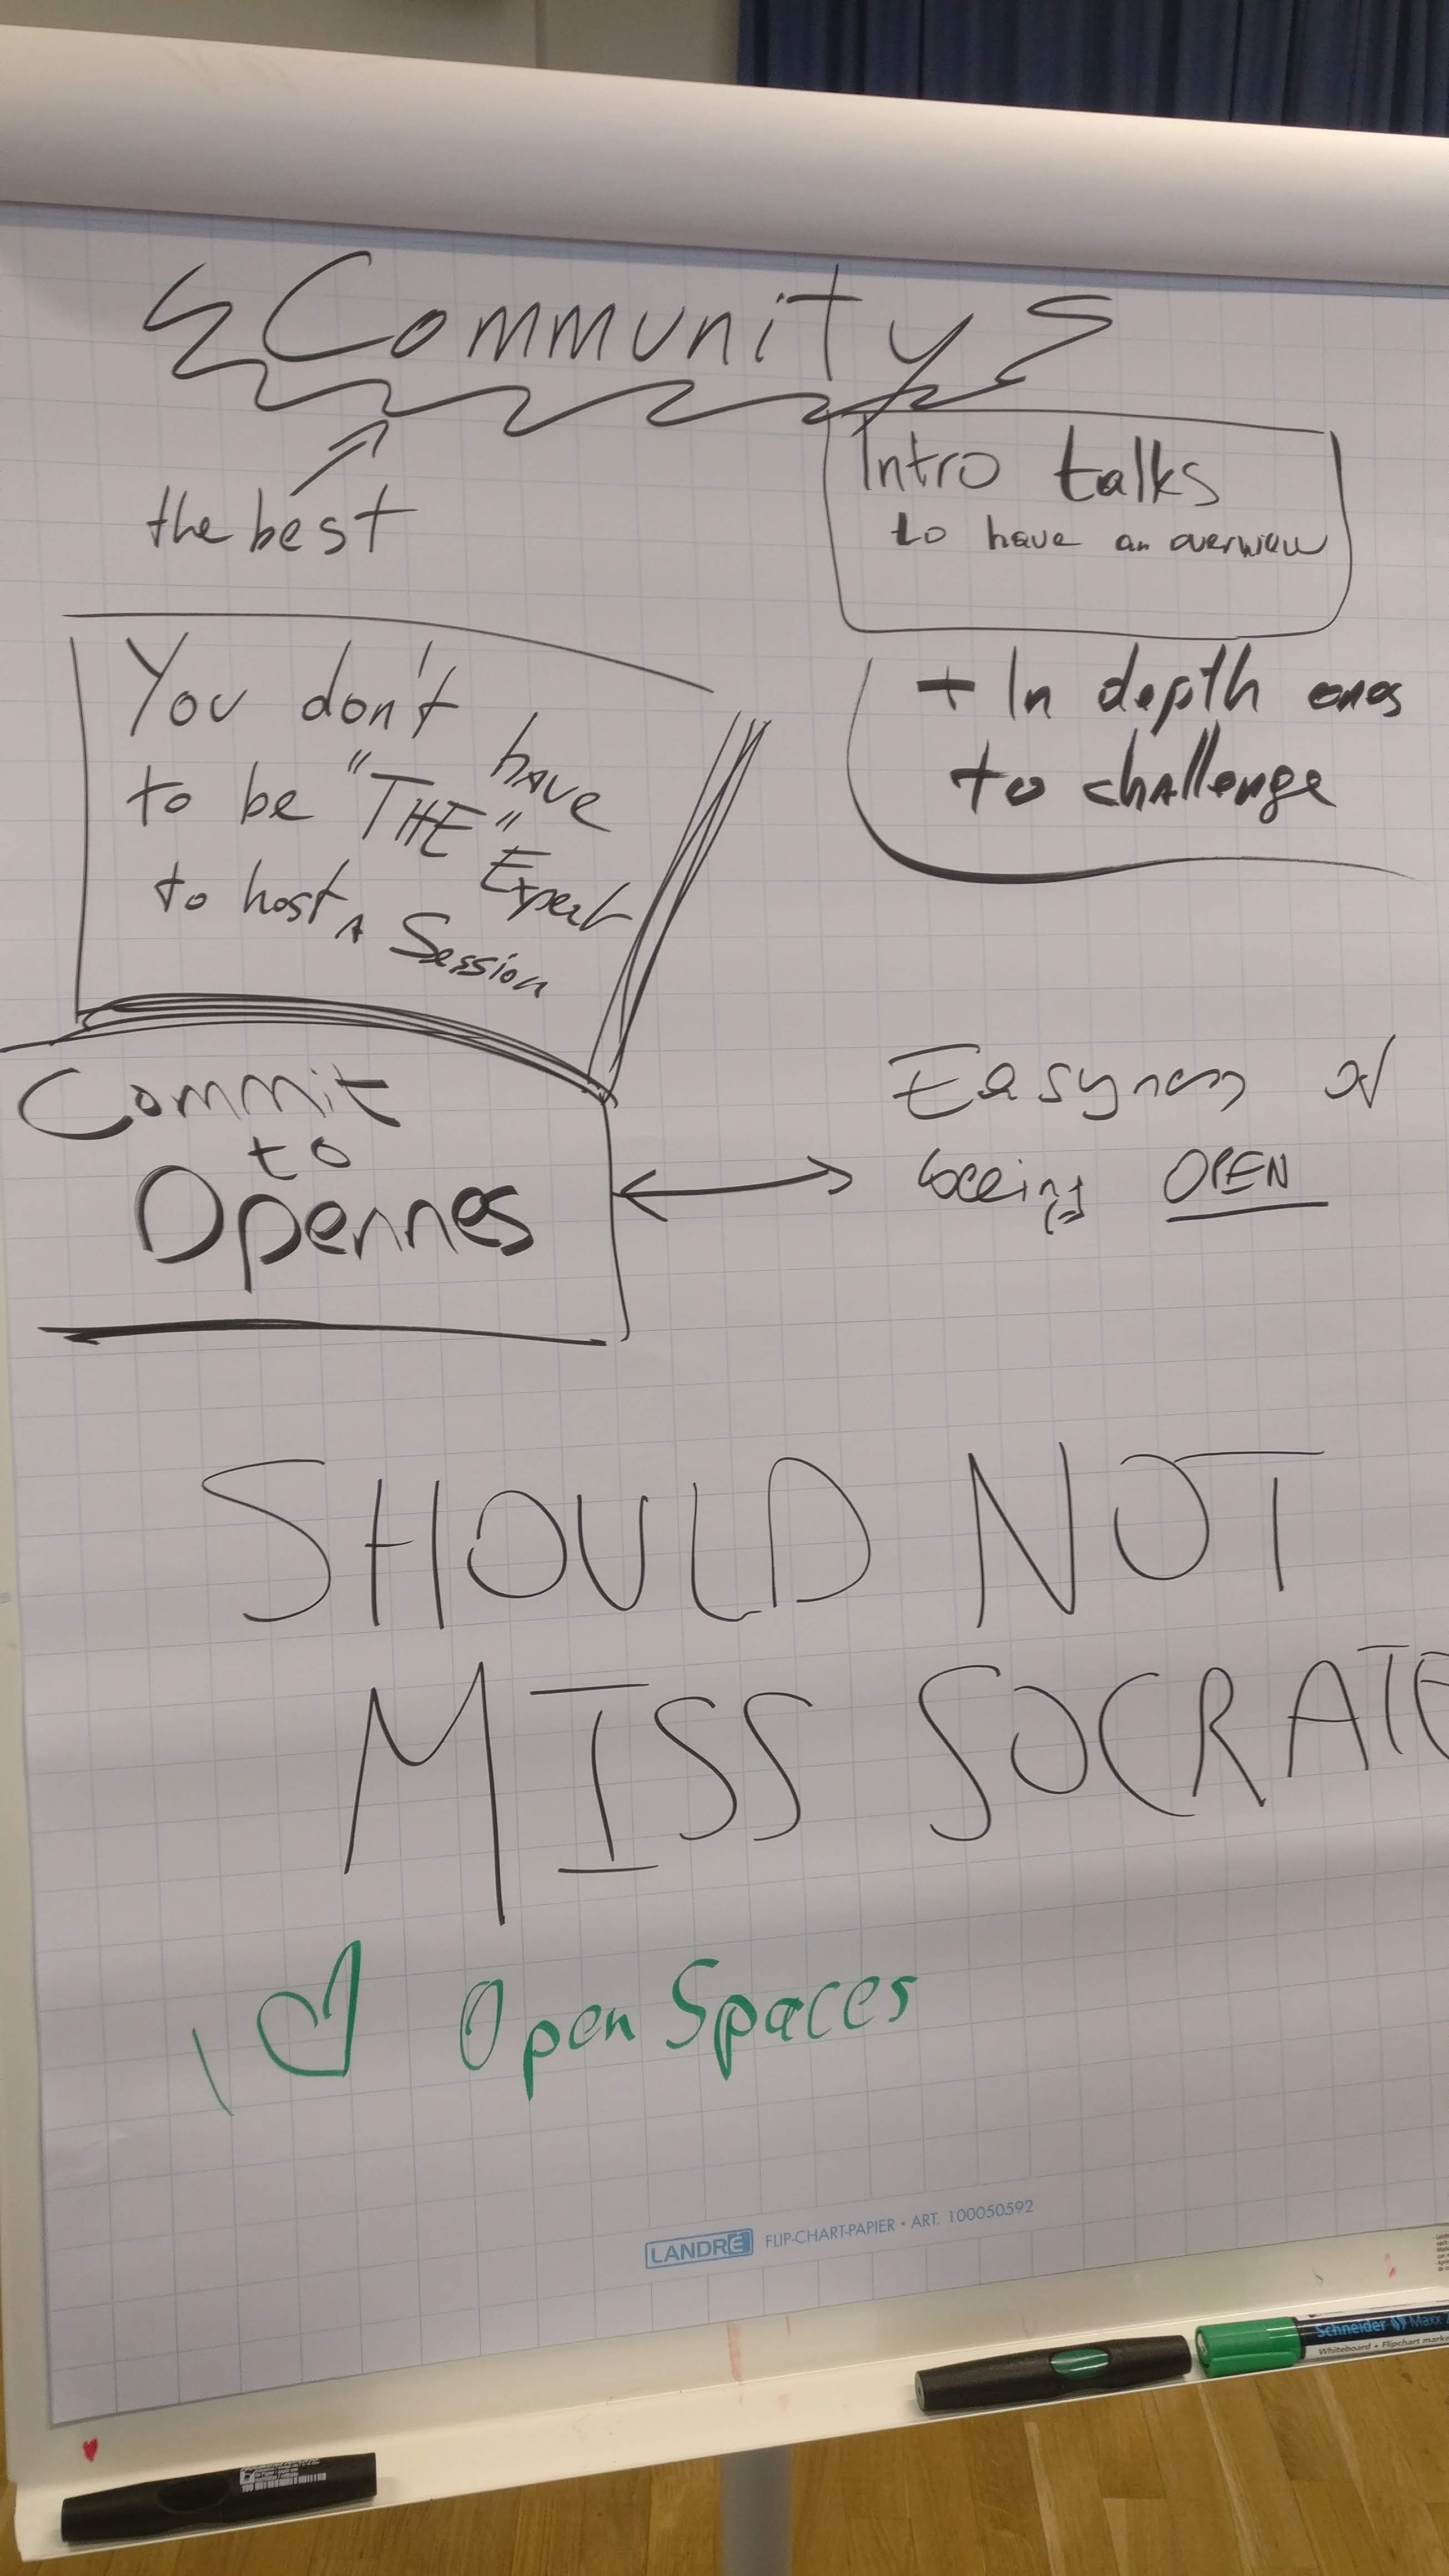 Community
the best
Intro talks
to have an overview
+ In depth ones
to challenge
You don't have
to be "THE" Expert
to host A Session
Commit
to
Opennes
Easyness of
beeing OPEN
SHOULD NOT
MISS SOCRATE
I ♡ Open Spaces
LANDRÉ FLIP-CHART-PAPIER • ART. 100050592
Schneider Maxx
Whiteboard + Flipchart marke